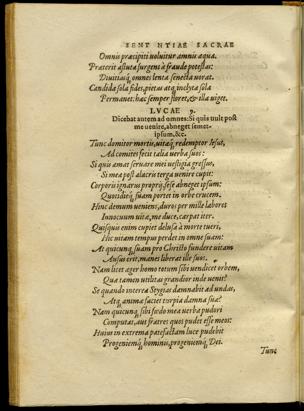 SENTENTIAE SACRAE
Omnis præcipiti voluitur amnis aqua.
Præterit astuta surgens à fraude potestas:
Diuitiasq́; omnes lenta senecta vorat.
Candida sola fides, pietas atq́; inclyta sola
Permanet: hæc semper floret, & illa viget.
LVCAE 9.
Dicebat autem ad omnes: Si quis vult post
me venire, abneget semet-
ipsum, &c.
Tunc domitor mortis, vitæq́; redemptor Iesus,
Ad comites fecit talia verba suos:
Si quis amat seruare mei vestigia gressus,
Si mea post alacris terga venire cupit:
Corporis ignarus proprij, sese abneget ipsum:
Quotidieq́; suam portet in orbe crucem.
Hinc demum veniens, duros per mille labores
Innocuum vitæ, me duce, carpat iter.
Quisquis enim cupiet delusa à morte tueri,
Hic vitam tempus perdet in omne suam:
At quicunq́; suam pro Christo fundere vitam
Ausus erit, manes liberat ille suos.
Nam licet ager homo totum sibi vendicet orbem,
Qua tamen vtilitas grandior inde venit?
Se quando interea Stygias damnabit ad vndas,
Atq́; anima faciet turpia damna sua?
Nam quicunq́; sibi fœdo mea verba pudori
Computat, aut fratres quos pudet esse meos:
Huius in extrema patefactam luce pudebit
Progeniemq́; hominis, progeniemq́; Dei.
Tunc